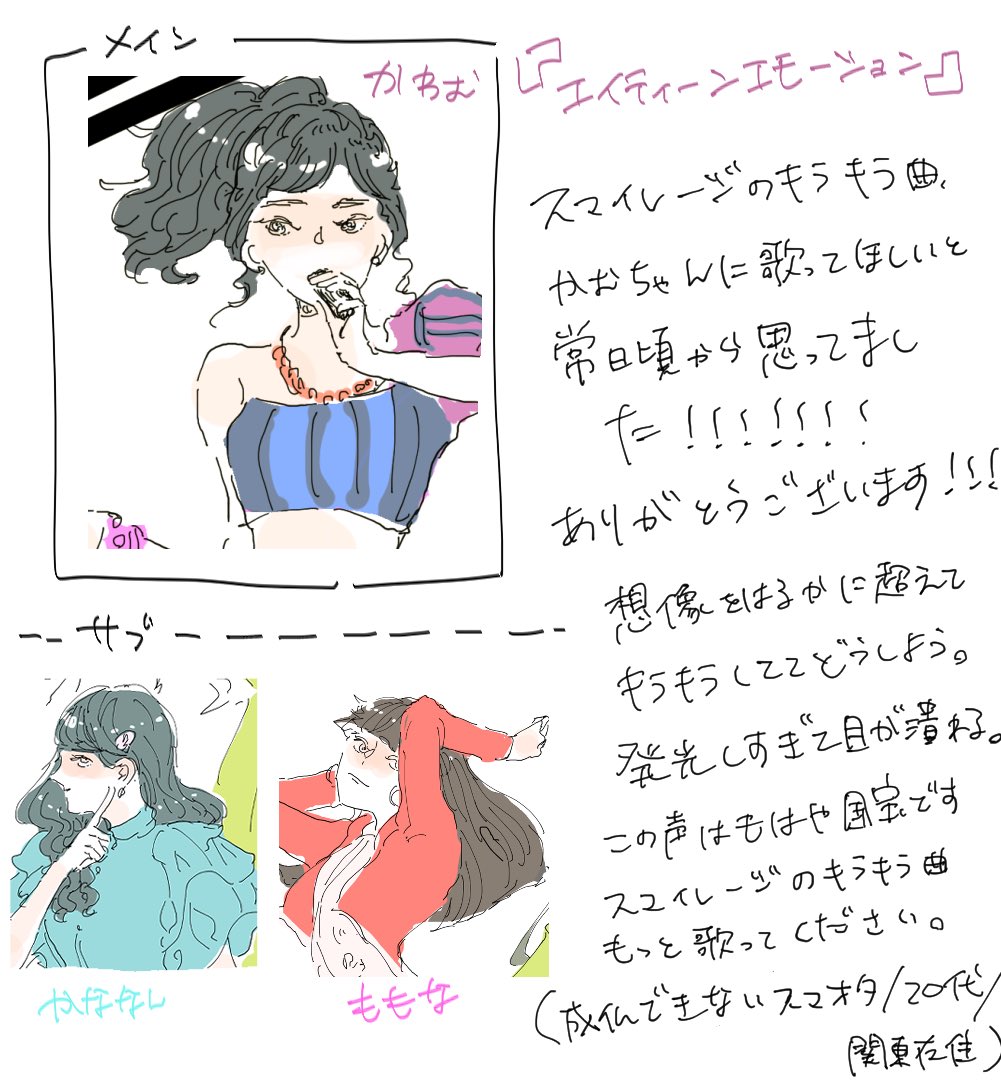 メイン
かわむ
『エイティーンエモーション』
スマイレージのもうもう曲、
かむちゃんに歌ってほしいと
常日頃から思ってまし
た!!!!!!!
ありがとうございます!!!
想像をはるかに超えて
もうもうしててどうしよう。
発光しすぎて目が潰れる。
この声はもはや国宝です
スマイレージのもうもう曲
もっと歌ってください。
(成仏できないスマオタ/20代/
関東在住)
サブ
かななん
ももな